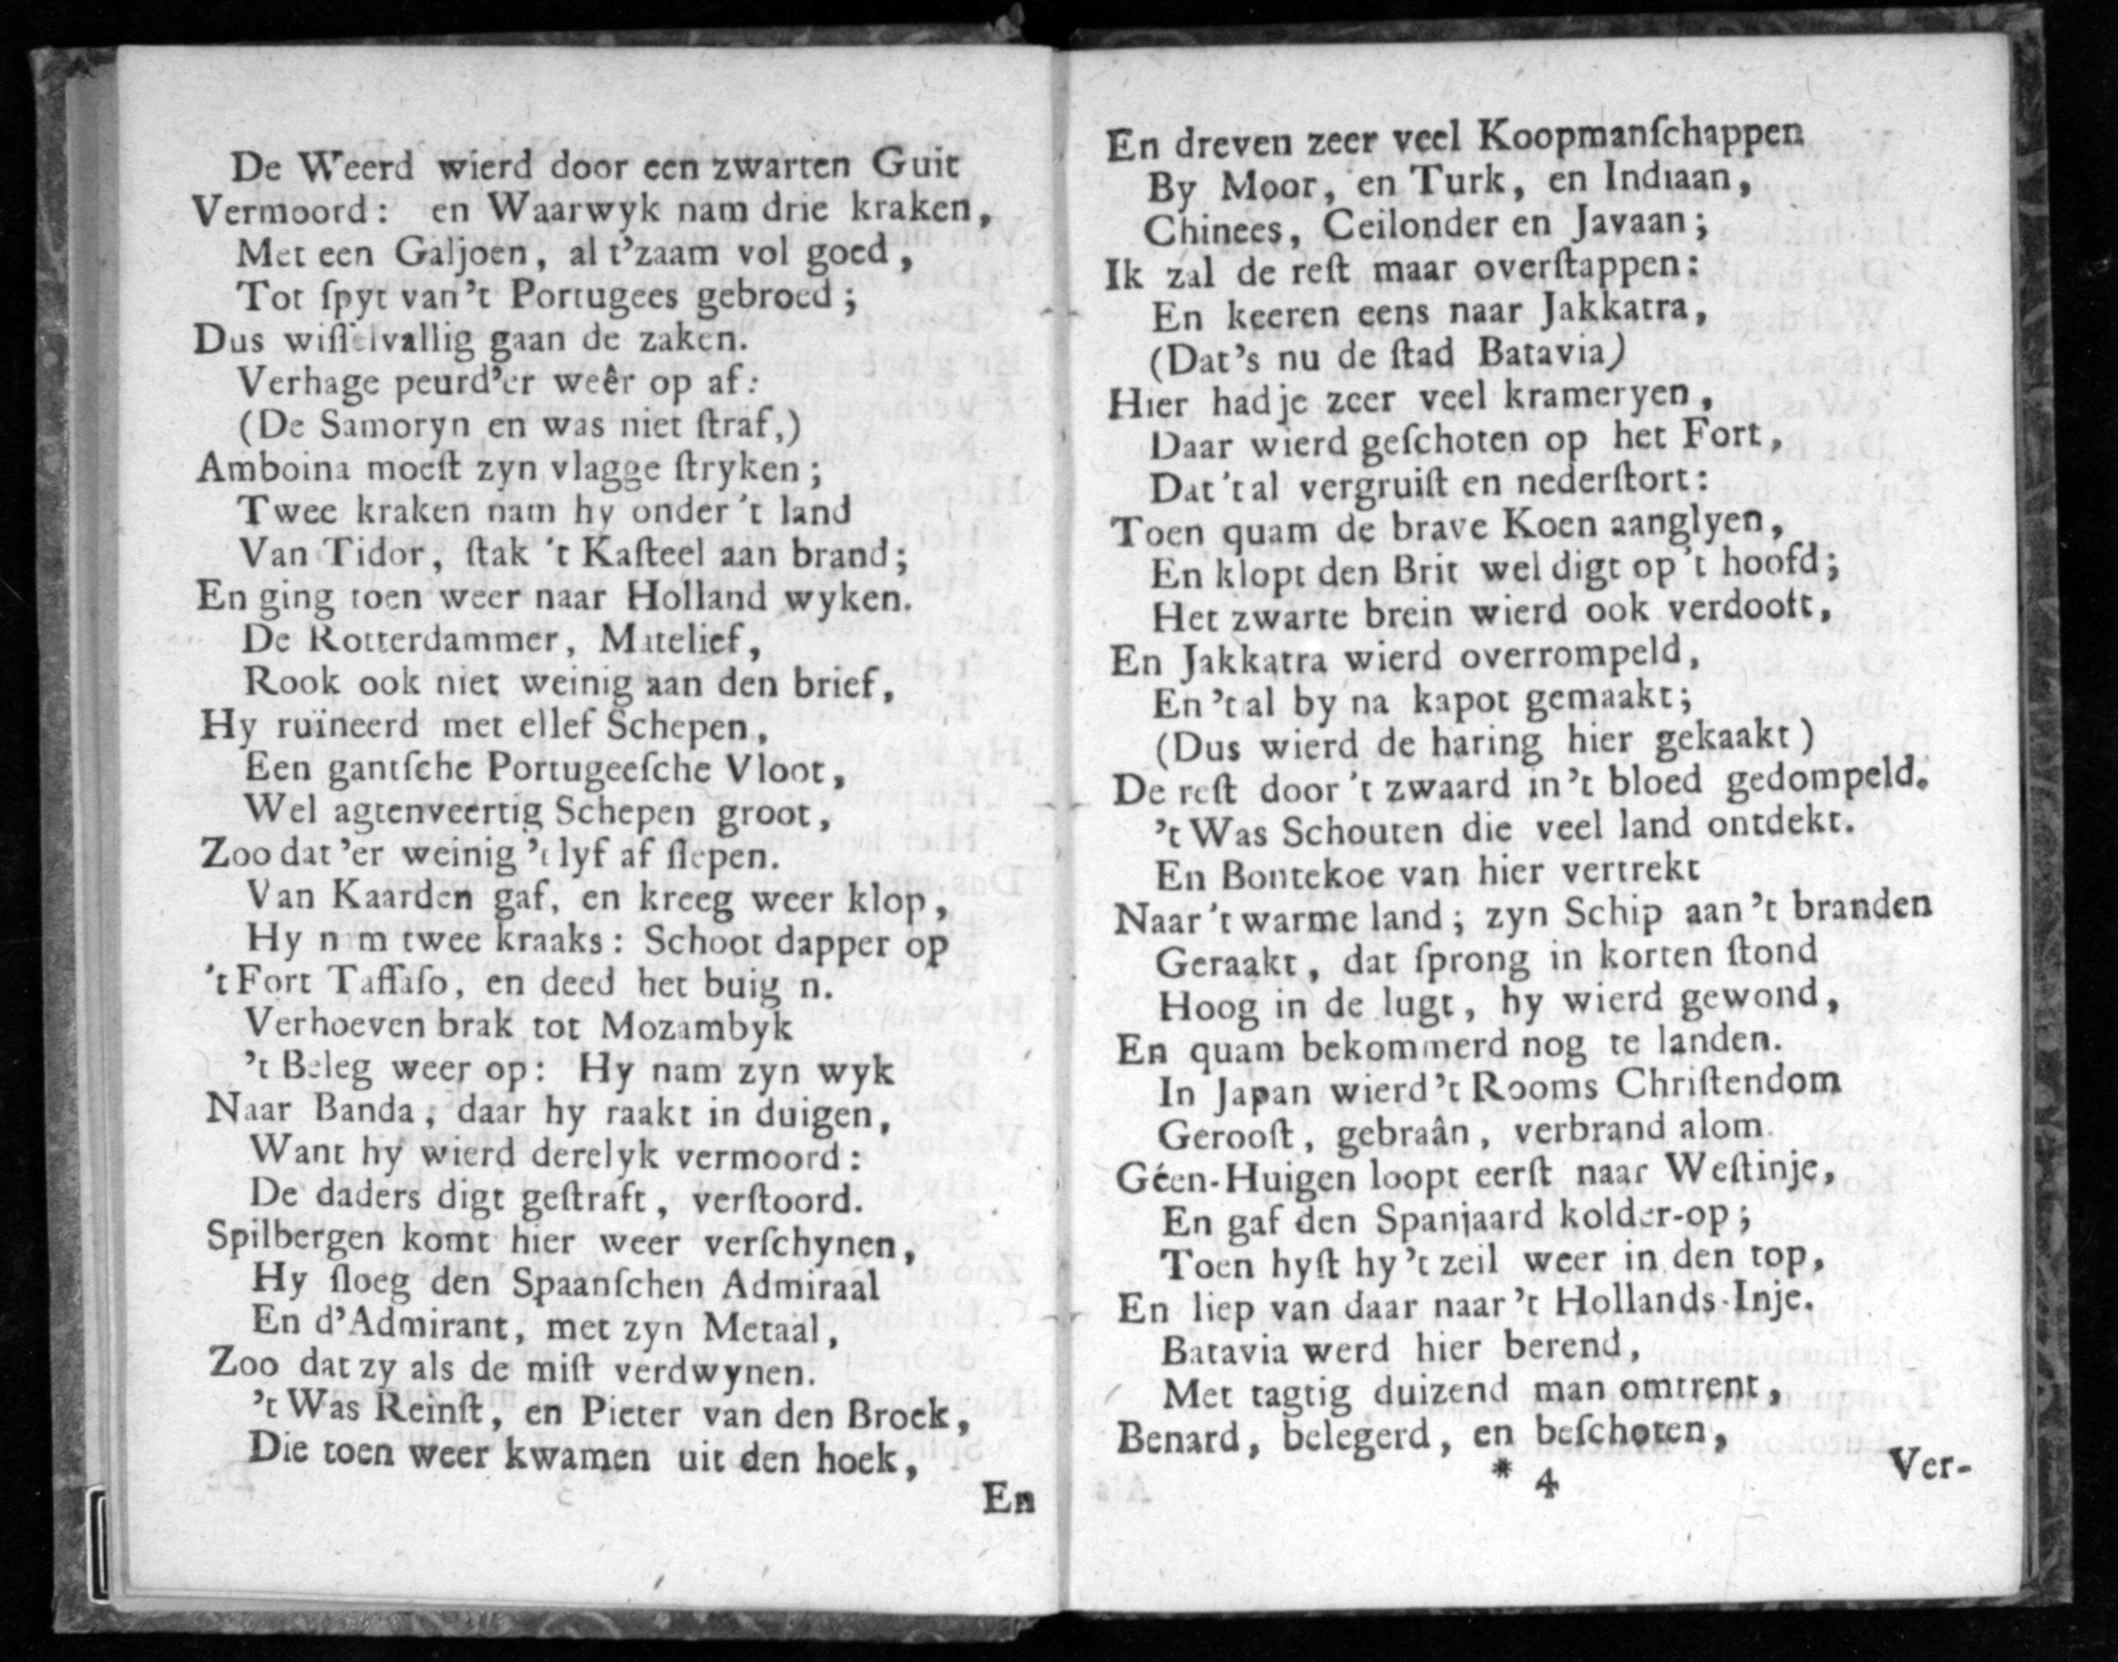 De Weerd wierd door een zwarten Guit
Vermoord: en Waarwyk nam drie kraken,
Met een Galjoen, al t'zaam vol goed,
Tot ſpyt van 't Portugees gebroed;
Dus wiſſelvallig gaan de zaken.
Verhage peurd'er weêr op af:
(De Samoryn en was niet ſtraf,)
Amboina moeſt zyn vlagge ſtryken;
Twee kraken nam hy onder 't land
Van Tidor, ſtak 't Kaſteel aan brand;
En ging toen weer naar Holland wyken.
De Rotterdammer, Matelief,
Rook ook niet weinig aan den brief,
Hy ruïneerd met ellef Schepen,
Een gantſche Portugeeſche Vloot,
Wel agtenveertig Schepen groot,
Zoo dat 'er weinig 't lyf af ſlepen.
Van Kaarden gaf, en kreeg weer klop,
Hy n m twee kraaks: Schoot dapper op
't Fort Taffaſo, en deed het buig n.
Verhoeven brak tot Mozambyk
't Beleg weer op: Hy nam zyn wyk
Naar Banda, daar hy raakt in duigen,
Want hy wierd derelyk vermoord:
De daders digt geſtraft, verſtoord.
Spilbergen komt hier weer verſchynen,
Hy ſloeg den Spaanſchen Admiraal
En d'Admirant, met zyn Metaal,
Zoo dat zy als de miſt verdwynen.
't Was Reinſt, en Pieter van den Broek,
Die toen weer kwamen uit den hoek,
En
En dreven zeer veel Koopmanſchappen
By Moor, en Turk, en Indiaan,
Chinees, Ceilonder en Javaan;
Ik zal de reſt maar overſtappen:
En keeren eens naar Jakkatra,
(Dat's nu de ſtad Batavia)
Hier had je zeer veel krameryen,
Daar wierd geſchoten op het Fort,
Dat 't al vergruiſt en nederſtort:
Toen quam de brave Koen aanglyen,
En klopt den Brit wel digt op 't hoofd;
Het zwarte brein wierd ook verdooft,
En Jakkatra wierd overrompeld,
En 't al by na kapot gemaakt;
(Dus wierd de haring hier gekaakt)
De reſt door 't zwaard in 't bloed gedompeld.
't Was Schouten die veel land ontdekt.
En Bontekoe van hier vertrekt
Naar 't warme land; zyn Schip aan 't branden
Geraakt, dat ſprong in korten ſtond
Hoog in de lugt, hy wierd gewond,
En quam bekommerd nog te landen.
In Japan wierd 't Rooms Chriſtendom
Gerooſt, gebraân, verbrand alom.
Géen-Huigen loopt eerſt naar Weſtinje,
En gaf den Spanjaard kolder-op;
Toen hyſt hy 't zeil weer in den top,
En liep van daar naar 't Hollands-Inje.
Batavia werd hier berend,
Met tagtig duizend man omtrent,
Benard, belegerd, en beſchoten,
* 4
Ver-